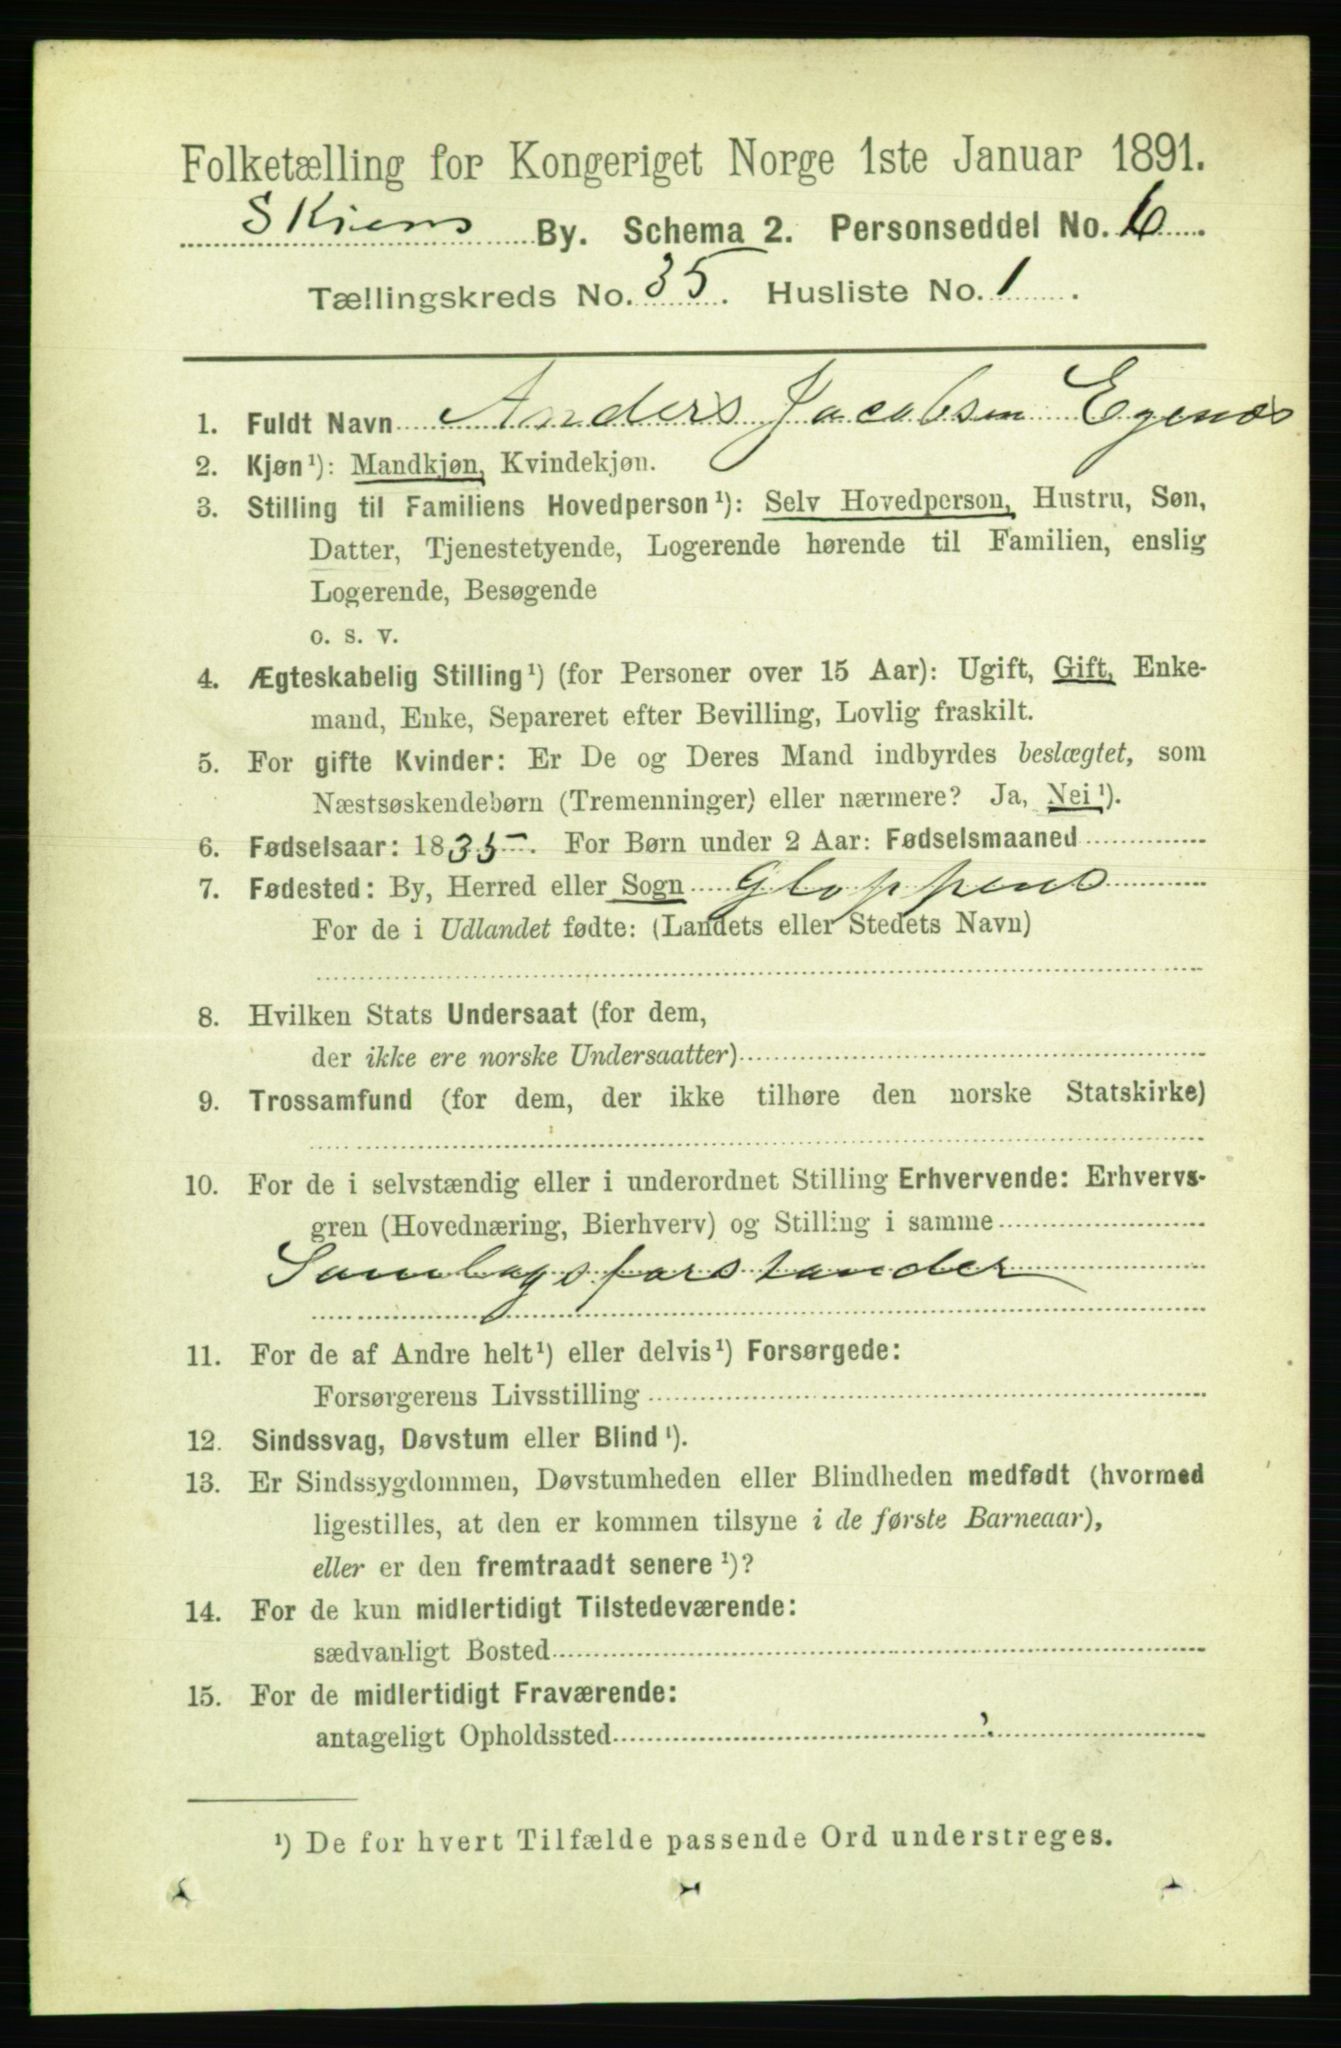 Folketælling for Kongeriget Norge 1ste Januar 1891.
Skiens By. Schema 2. Personseddel No. 6.
Tællingskreds No. 35. Husliste No. 1.
1. Fuldt Navn Anders Jacobsen Egenæs
2. Kjøn¹): Mandkjøn, Kvindekjøn.
3. Stilling til Familiens Hovedperson¹): Selv Hovedperson, Hustru, Søn,
Datter, Tjenestetyende, Logerende hørende til Familien, enslig
Logerende, Besøgende
o. s. v.
4. Ægteskabelig Stilling¹) (for Personer over 15 Aar): Ugift, Gift, Enke-
mand, Enke, Separeret efter Bevilling, Lovlig fraskilt.
5. For gifte Kvinder: Er De og Deres Mand indbyrdes beslægtet, som
Næstsøskendebørn (Tremenninger) eller nærmere? Ja, Nei¹).
6. Fødselsaar: 1835. For Børn under 2 Aar: Fødselsmaaned
7. Fødested: By, Herred eller Sogn Gloppens
For de i Udlandet fødte: (Landets eller Stedets Navn)
8. Hvilken Stats Undersaat (for dem,
der ikke ere norske Undersaatter)
9. Trossamfund (for dem, der ikke tilhøre den norske Statskirke)
10. For de i selvstændig eller i underordnet Stilling Erhvervende: Erhvervs-
gren (Hovednæring, Bierhverv) og Stilling i samme
Samlagsforstander
11. For de af Andre helt¹) eller delvis¹) Forsørgede:
Forsørgerens Livsstilling
12. Sindssvag, Døvstum eller Blind¹).
13. Er Sindssygdommen, Døvstumheden eller Blindheden medfødt (hvormed
ligestilles, at den er kommen tilsyne i de første Barneaar),
eller er den fremtraadt senere¹)?
14. For de kun midlertidigt Tilstedeværende:
sædvanligt Bosted
15. For de midlertidigt Fraværende:
antageligt Opholdssted
¹) De for hvert Tilfælde passende Ord understreges.